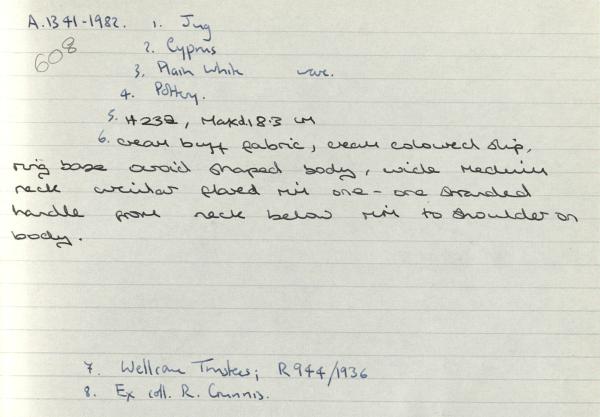 A.1341-1982. 1. Jug
608
2. Cyprus
3. Plain White ware.
4. Pottery.
5. H23.2, Maxd18.3 cm
6. cream buff fabric, cream coloured slip,
ring base ovoid shaped body, wide medium
neck circular flared rim one - one stranded
handle from neck below rim to shoulder on
body.
7. Wellcome Trustees; R944/1936
8. Ex coll. R. Gunnis.